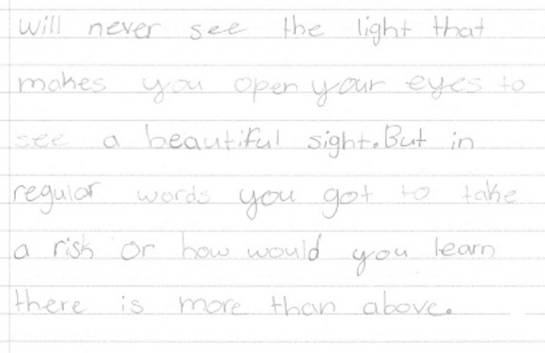 will never see the light that
makes you open your eyes to
see a beautiful sight. But in
regular words you got to take
a risk or how would you learn
there is more than above.